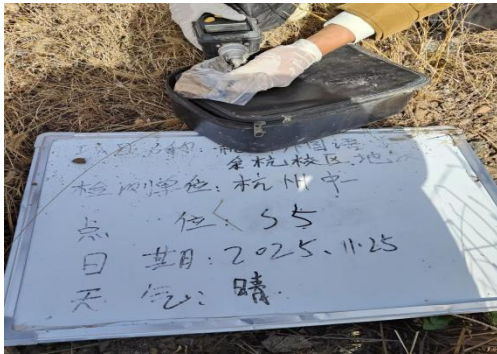 名称: 外国语
余杭校区 地
检测单位: 杭州中一
点 位: S5
日 期: 2025.11.25
天 气: 晴.